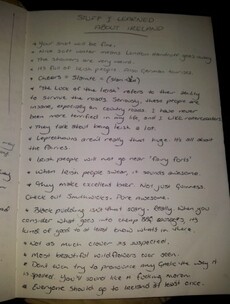 STUFF I LEARNED
ABOUT IRELAND
• Your boat will be fine.
• but water means
• The showers are very warm.
• It's full of Irish people. And German tourists.
• Cheers = Slainte =
• "The Luck of the Irish" refers to their ability
to survive the roads. Seriously, these people are
insane, especially on country roads. I have never
been more terrified in my life, and I like rollercoasters
• They talk about being Irish a lot.
• Leprechauns aren't really that huge. It's all about
the fairies.
• Irish people will not go near "fairy forts"
• When Irish people swear, it sounds awesome.
• They make excellent beer. Not just Guinness.
Check out Smithwicks. Pure Awesome.
• Black pudding isn't that scary. Really. When you
consider what goes into cheap sausages, it's
kinda good to at least know what's in there
• Not as much clover as suspected.
• Most beautiful wildflowers ever seen.
• Don't even try to pronounce any Gaelic the way it
is spelled. You'll sound like a fucking moron.
• Everyone should go to Ireland at least once.